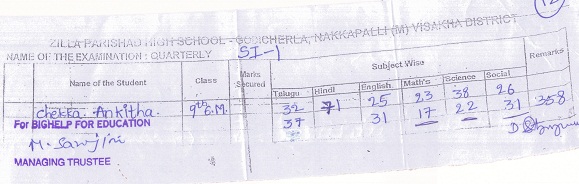 12
ZILLA PARISHAD HIGH SCHOOL - GODICHERLA, NAKKAPALLI (M) VISAKHA DISTRICT
NAME OF THE EXAMINATION : QUARTERLY SI-1
Name of the Student Class Marks Secured Subject Wise Remarks
Telugu Hindi English Math's Science Social
chekka. Ankitha. 9th E.M. 32 71 25 23 38 26
37 31 17 22 31 358
For BIGHELP FOR EDUCATION
M. Sarojini
MANAGING TRUSTEE